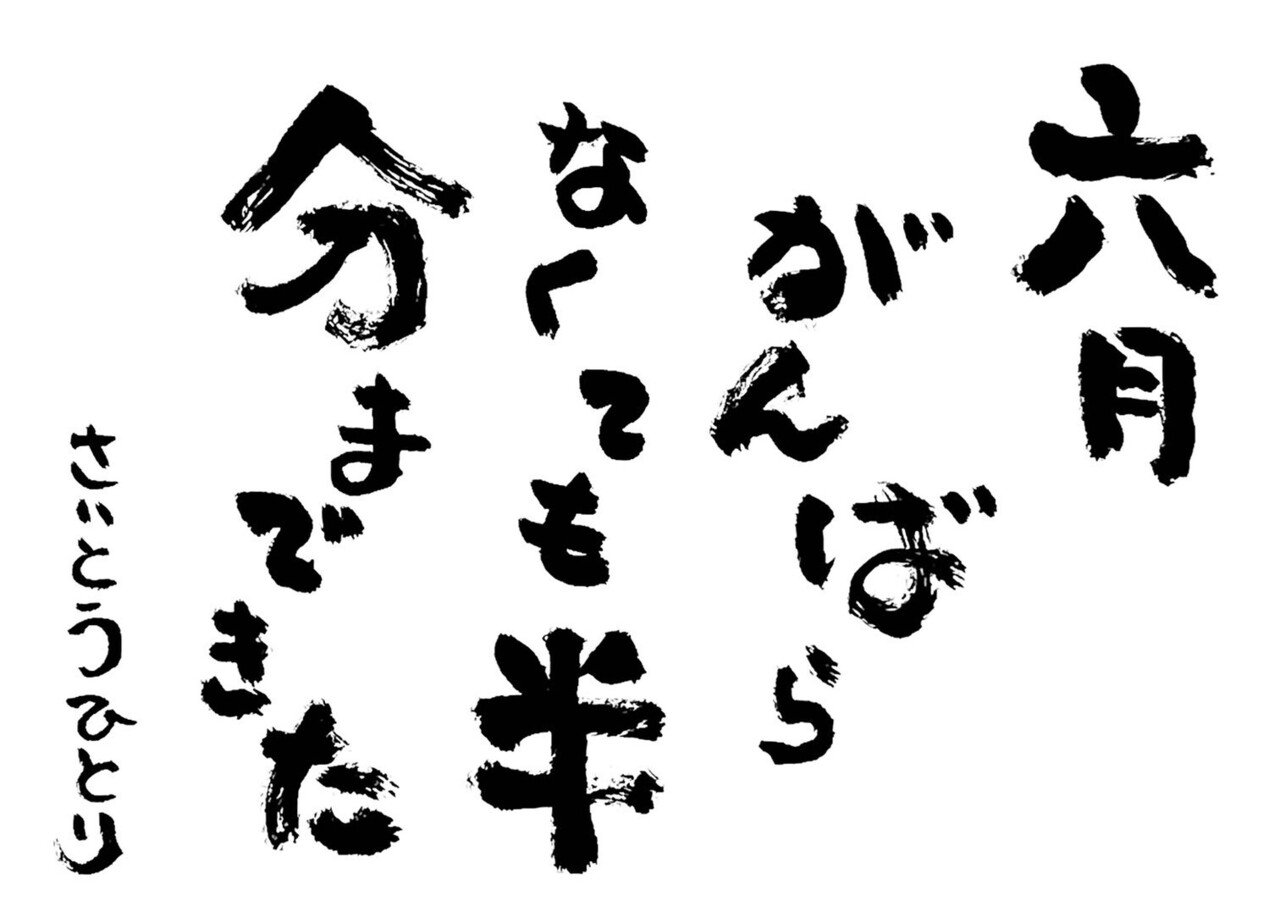 六月
がんばら
なくても半
分まできた
さいとうひとり